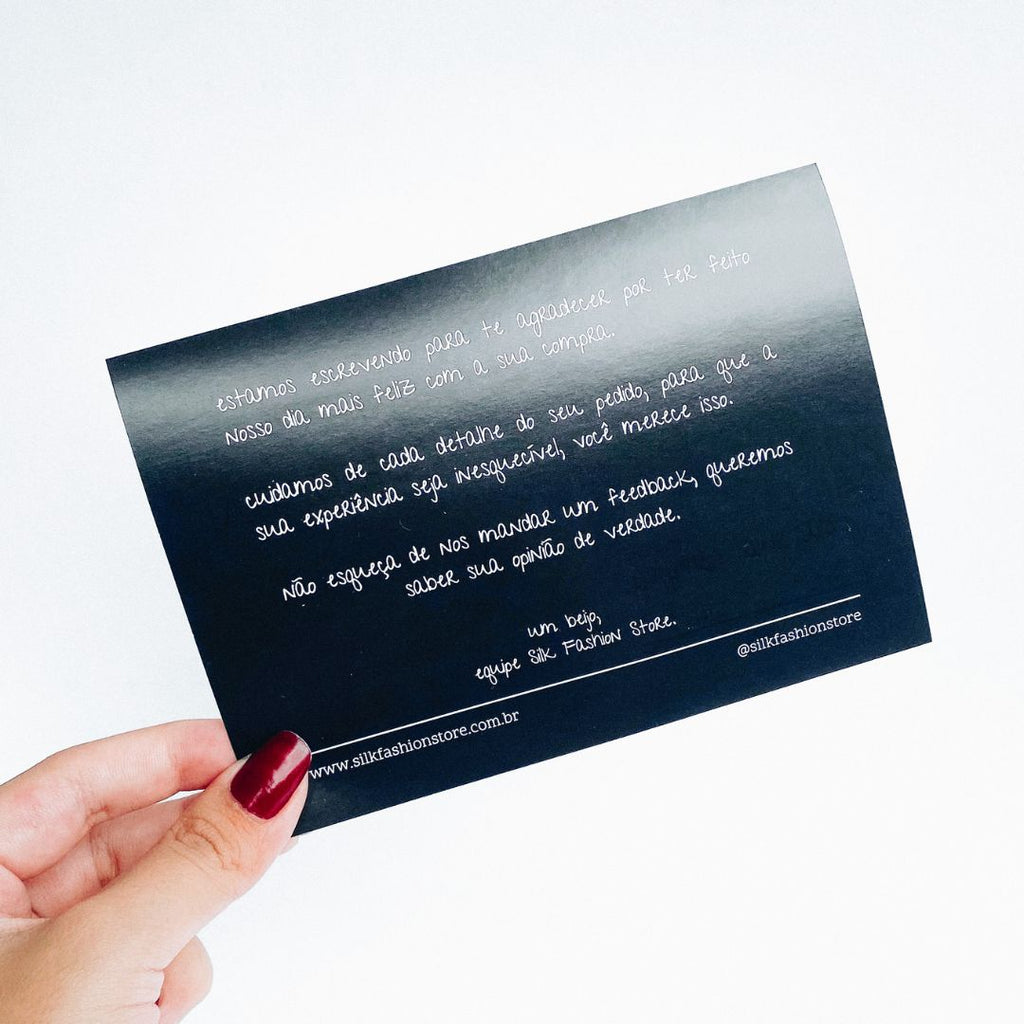 estamos escrevendo para te agradecer por ter feito
nosso dia mais feliz com a sua compra.
cuidamos de cada detalhe do seu pedido, para que a
sua experiência seja inesquecível, você merece isso.
não esqueça de nos mandar um feedback, queremos
saber sua opinião de verdade.
um beijo,
equipe Silk Fashion Store.
www.silkfashionstore.com.br
@silkfashionstore